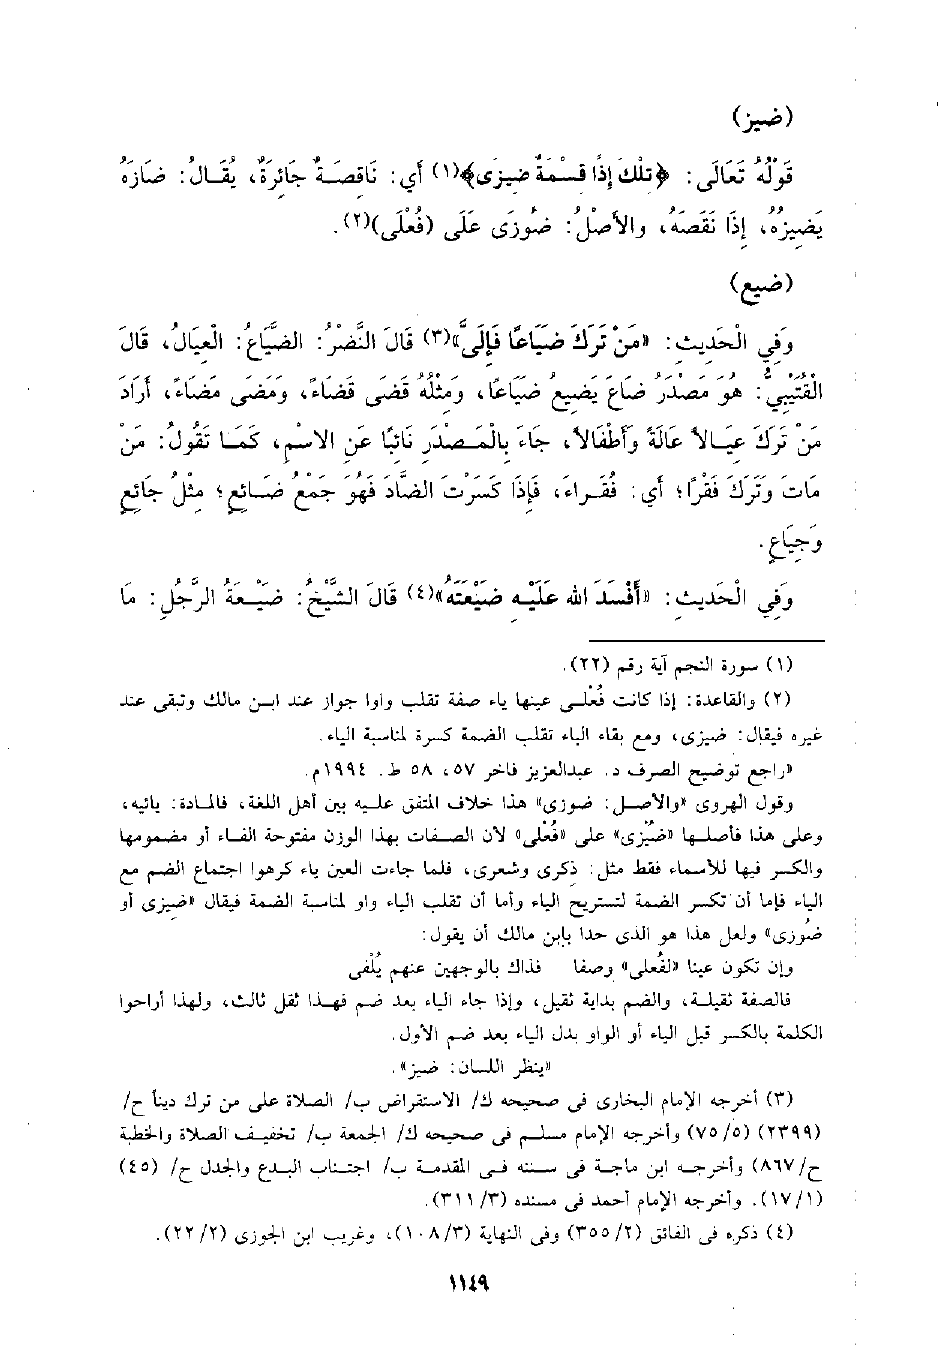 (ضيز)
قَوْلُهُ تَعَالَى: ﴿تِلْكَ إِذًا قِسْمَةٌ ضِيزَى﴾(١) أي: نَاقِصَةٌ جَائِرَةٌ، يُقَالُ: ضَازَهُ
يَضِيزُهُ، إِذَا نَقَصَهُ، والأَصْلُ: ضُوزَى عَلَى (فُعْلَى)(٢).
(ضيع)
وَفِي الْحَدِيثِ: «مَنْ تَرَكَ ضَيَاعًا فَإِلَيَّ»(٣) قَالَ النَّضْرُ: الضَّيَاعُ: الْعِيَالُ، قَالَ
الْقُتَيْبِيُّ: هُوَ مَصْدَرُ ضَاعَ يَضِيعُ ضَيَاعًا، وَمِثْلُهُ قَضَى قَضَاءً، وَمَضَى مَضَاءً، أَرَادَ
مَنْ تَرَكَ عِيَالاً عَالَةً وَأَطْفَالاً، جَاءَ بِالْمَصْدَرِ نَائِبًا عَنِ الاسْمِ، كَمَا تَقُولُ: مَنْ
مَاتَ وَتَرَكَ فَقْرًا؛ أي: فُقَراءَ، فَإِذَا كَسَرْتَ الضَّادَ فَهُوَ جَمْعُ ضَائِعٍ؛ مِثْلُ جَائِعٍ
وَجِيَاعٍ.
وَفِي الْحَدِيثِ: «أَفْسَدَ الله عَلَيْهِ ضَيْعَتَهُ»(٤) قَالَ الشَّيْخُ: ضَيْعَةُ الرَّجُلِ: مَا
(١) سورة النجم آية رقم (٢٢).
(٢) والقاعدة: إذا كانت فُعْلى عينها ياء صفة تقلب واوا جواز عند ابن مالك وتبقى عند
غيره فيقال: ضيزى، ومع بقاء الياء تقلب الضمة كسرة لمناسبة الياء.
«راجع توضيح الصرف د. عبدالعزيز فاخر ٥٧، ٥٨ ط. ١٩٩٤م.
وقول الهروى «والأصل: ضوزى» هذا خلاف المتفق عليه بين أهل اللغة، فالمادة: يائيه،
وعلى هذا فأصلها «ضُيْزى» على «فُعْلى» لأن الصفات بهذا الوزن مفتوحة الفاء أو مضمومها
والكسر فيها للأسماء فقط مثل: ذكرى وشعرى، فلما جاءت العين ياء كرهوا اجتماع الضم مع
الياء فإما أن تكسر الضمة لتستريح الياء وأما أن تقلب الياء واو لمناسبة الضمة فيقال «ضيزى أو
ضُوزى» ولعل هذا هو الذى حدا بإبن مالك أن يقول:
وإن تكون عينا «لفُعلى» وصفا فذاك بالوجهين عنهم يُلْفى
فالصفة ثقيلة، والضم بداية ثقيل، وإذا جاء الياء بعد ضم فهذا ثقل ثالث، ولهذا أراحوا
الكلمة بالكسر قبل الياء أو الواو بدل الياء بعد ضم الأول.
«ينظر اللسان: ضيز».
(٣) أخرجه الإمام البخارى فى صحيحه ك/ الاستقراض ب/ الصلاة على من ترك ديناً ح/
(٢٣٩٩) (٧٥/٥) وأخرجه الإمام مسلم فى صحيحه ك/ الجمعة ب/ تخفيف الصلاة والخطبة
ح/٨٦٧) وأخرجه ابن ماجة فى سننه فى المقدمة ب/ اجتناب البدع والجدل ح/ (٤٥)
(١٧/١). وأخرجه الإمام أحمد فى مسنده (٣١١/٣).
(٤) ذكره فى الفائق (٣٥٥/٢) وفى النهاية (١٠٨/٣)، وغريب ابن الجوزى (٢٢/٢).
١١٤٩